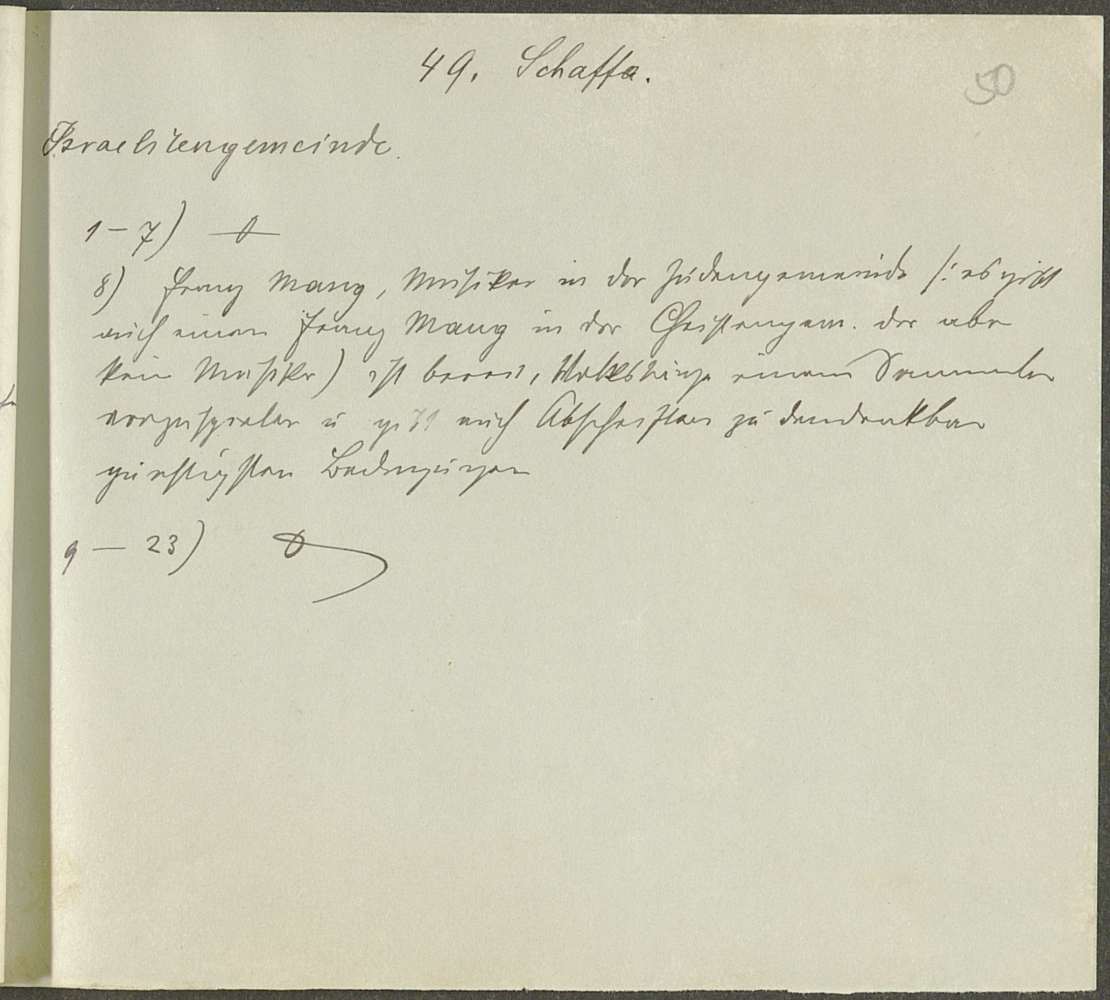 49. Schaffa.
50
Israelitengemeinde.
1 – 7) 0
8) Franz Mang, Musiker in der Judengemeinde /: es gibt
auch einen Franz Mang in der Christengem. der aber
kein Musiker) ist bereit, einem Sammler
vorzuspielen u gibt auch Abschriften zu den denkbar
günstigsten Bedingungen
9 – 23) 0